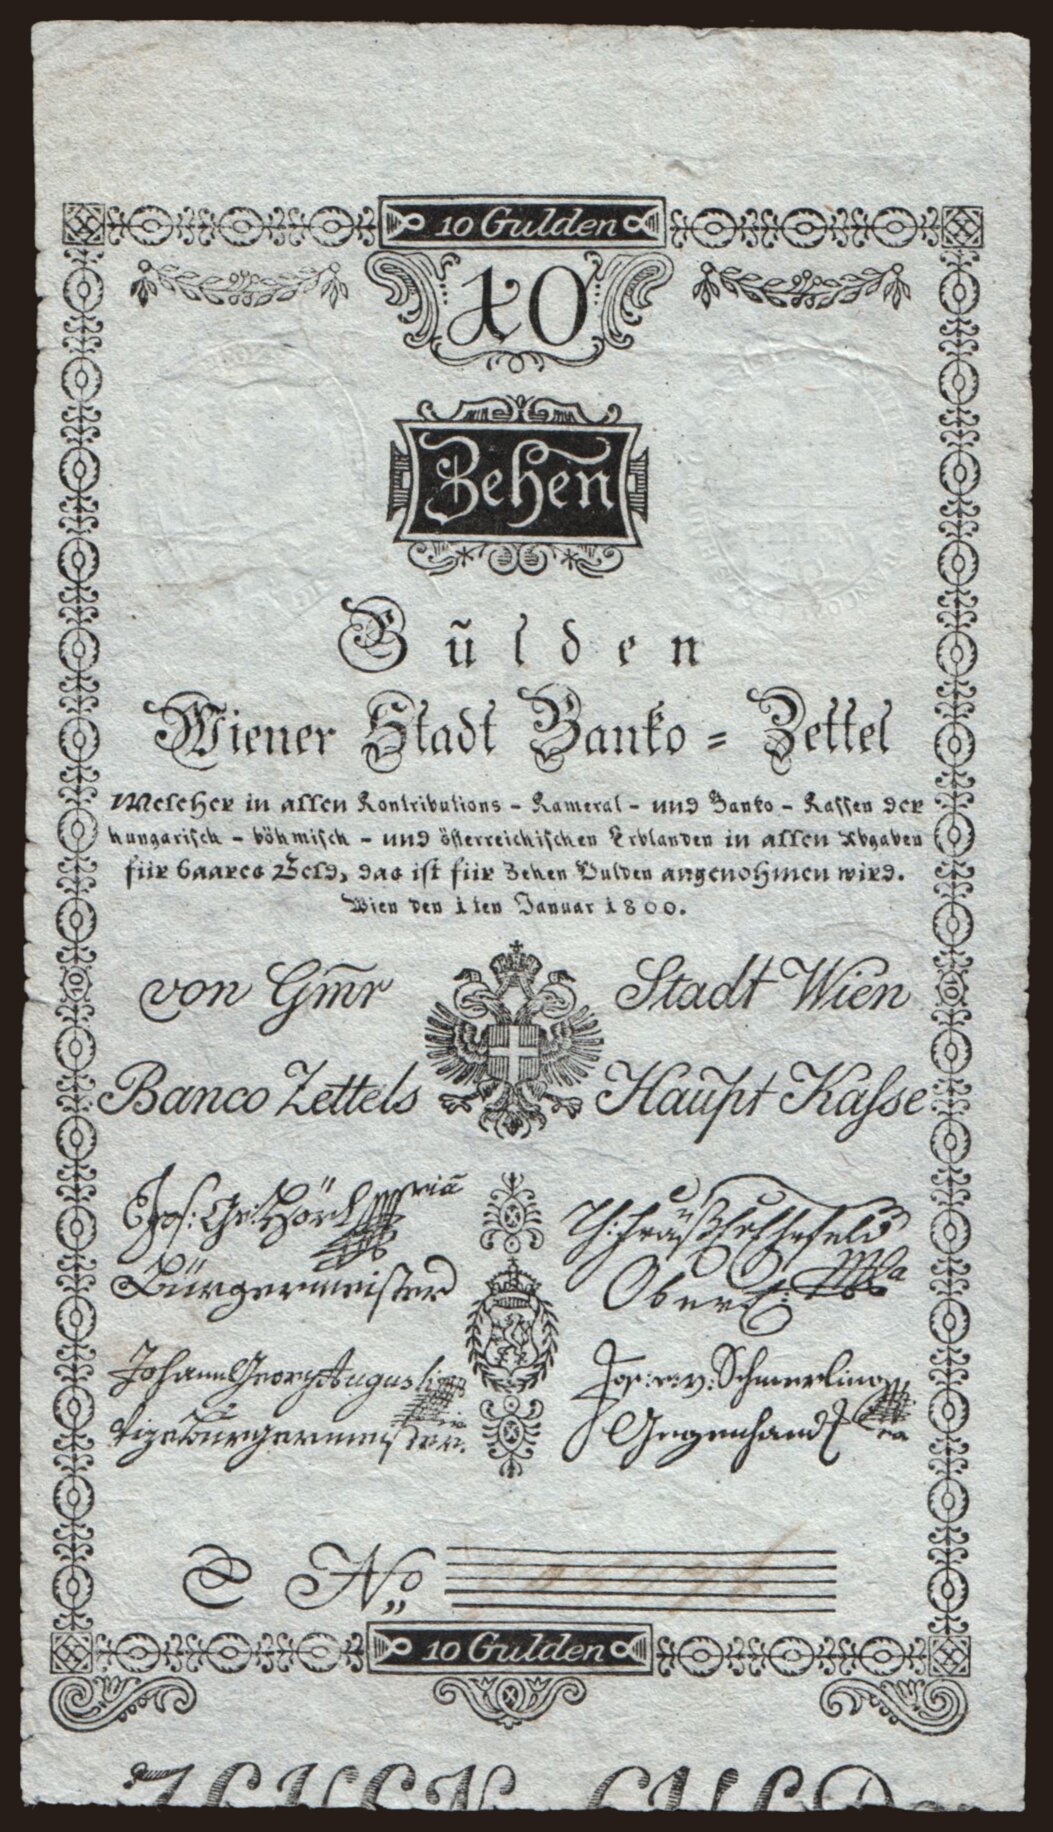 10 Gulden
10
Zehen
Gulden
Wiener Stadt Banko = Zettel
Welcher in allen Kontributions - Kameral - und Banko - Kassen der
hungarisch - böhmisch - und österreichischen Erblanden in allen Abgaben
für baares Geld, das ist für Zehen Gulden angenohmen wird.
Wien den 1ten Januar 1800.
von Gm̅r Stadt Wien
Banco Zettels Haupt Kasse
Jos: Ge: Hörl
Bürgermeister
Johann Georg Augusti
Vizebürgermeister
Jos: e. v: Schmerling
Gegenhand
No
10 Gulden